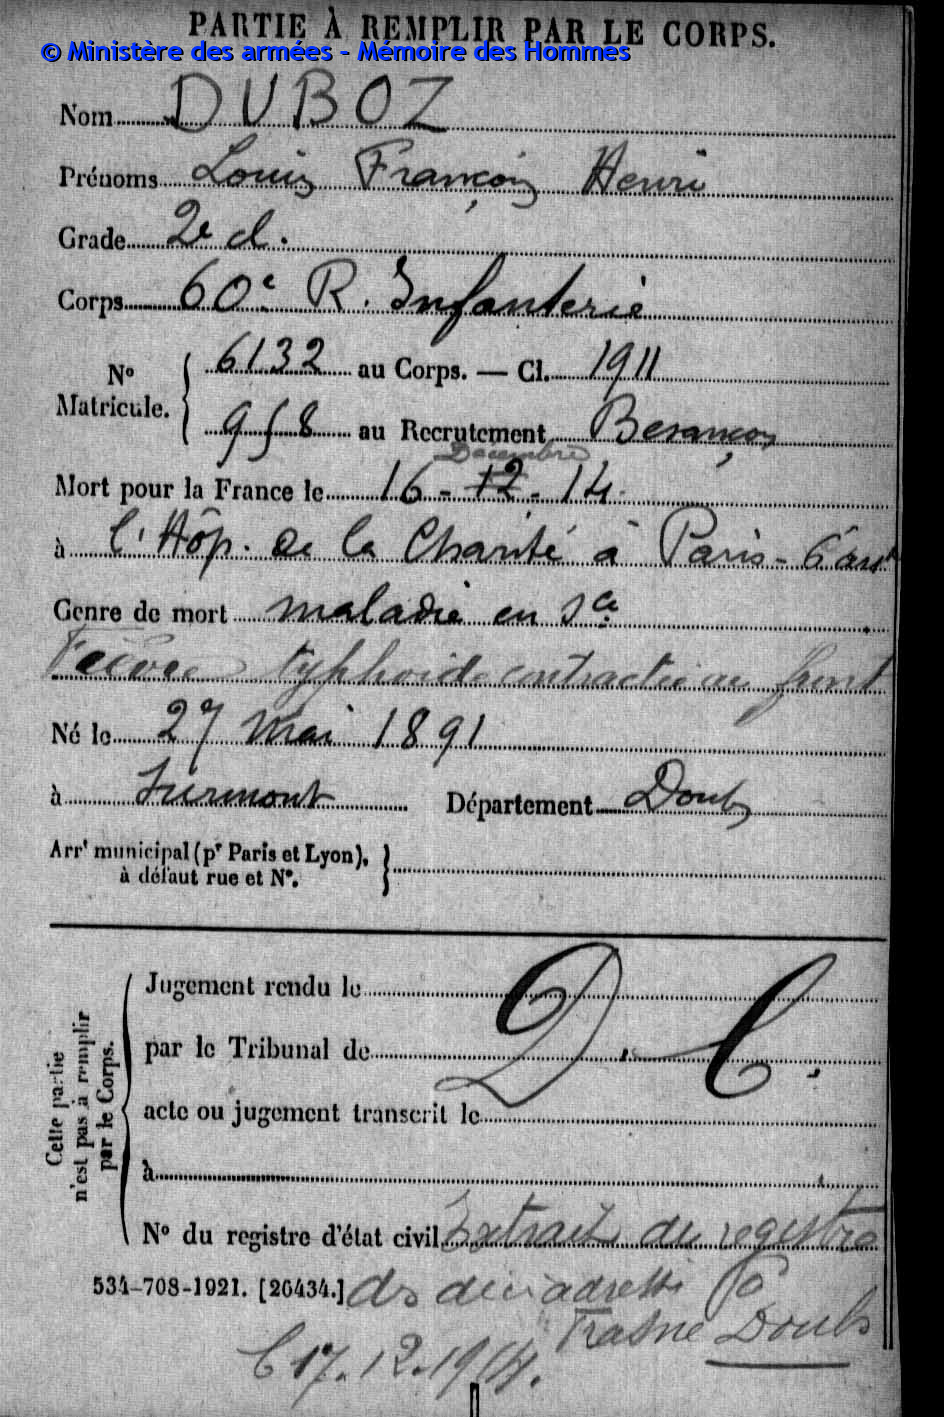 PARTIE À REMPLIR PAR LE CORPS.
© Ministère des armées - Mémoire des Hommes
Nom DUBOZ
Prénoms Louis François Henri
Grade 2e cl.
Corps 60e R. Infanterie
N° Matricule. 6132 au Corps. — Cl. 1911
958 au Recrutement Besançon
Décembre
Mort pour la France le 16 - 12 - 14
à l'Hôp. de la Charité à Paris - 6 arrt
Genre de mort maladie en sce
Fièvre typhoide contractée au front
Né le 27 Mai 1891
à Département Doubs
Arrt municipal (pr Paris et Lyon), à défaut rue et N°.
Cette partie n'est pas à remplir par le Corps.
Jugement rendu le
par le Tribunal de D. C.
acte ou jugement transcrit le
à
N° du registre d'état civil Extrait du registre
534-708-1921. [26434.] ds décès adressé
Frasne Doubs
le 17.12.1914.